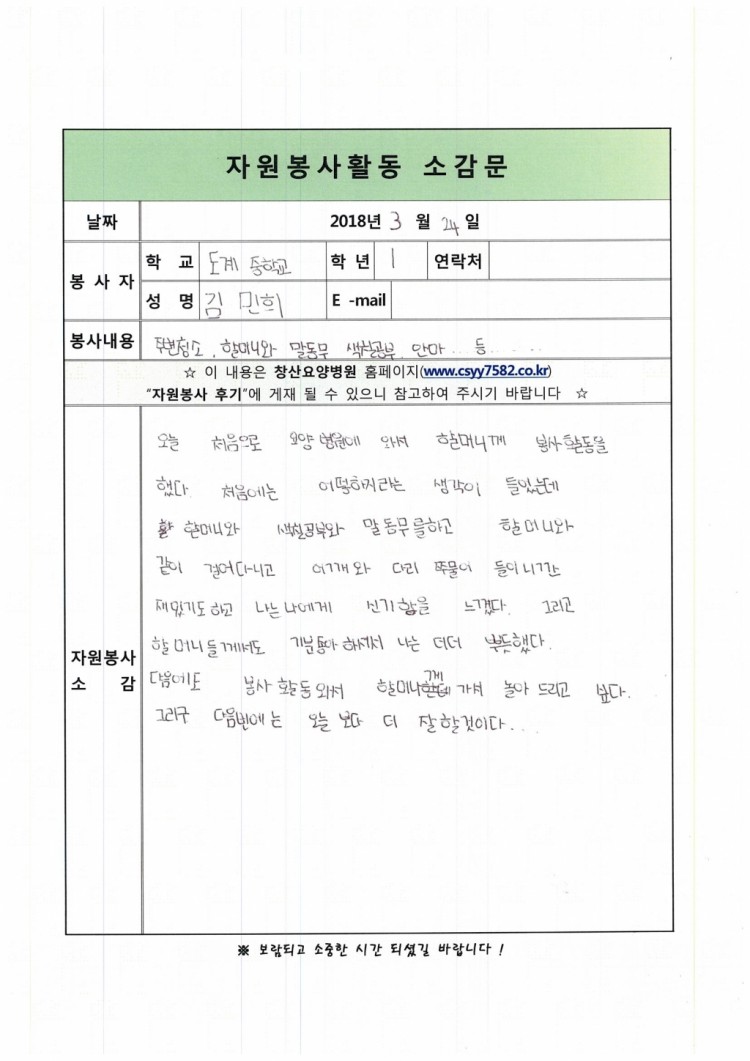 자원봉사활동 소감문
날짜 2018년 3 월 24 일
봉 사 자 학 교 도계 중학교 학 년 1 연락처
성 명 김 민희 E -mail
봉사내용 주변청소, 할머니와 말동무 색칠공부, 안마... 등......
☆ 이 내용은 창산요양병원 홈페이지(www.csyy7582.co.kr)
“자원봉사 후기”에 게재 될 수 있으니 참고하여 주시기 바랍니다 ☆
자원봉사 소 감
오늘 처음으로 요양병원에 와서 할머니께 봉사활동을
했다. 처음에는 어떡하지라는 생각이 들었는데
할머니와 색칠공부와 말동무를하고 할머니와
같이 걸어다니고 어깨와 다리 쭈물어 들이니깐
재밌기도하고 나는나에게 신기함을 느꼈다. 그리고
할머니들께서도 기분좋아 하셔서 나는 더더 뿌듯했다.
다음에도 봉사 활동와서 할머니께 가서 놀아 드리고 싶다.
그리구 다음번에는 오늘 보다 더 잘할것이다...
※ 보람되고 소중한 시간 되셨길 바랍니다 !